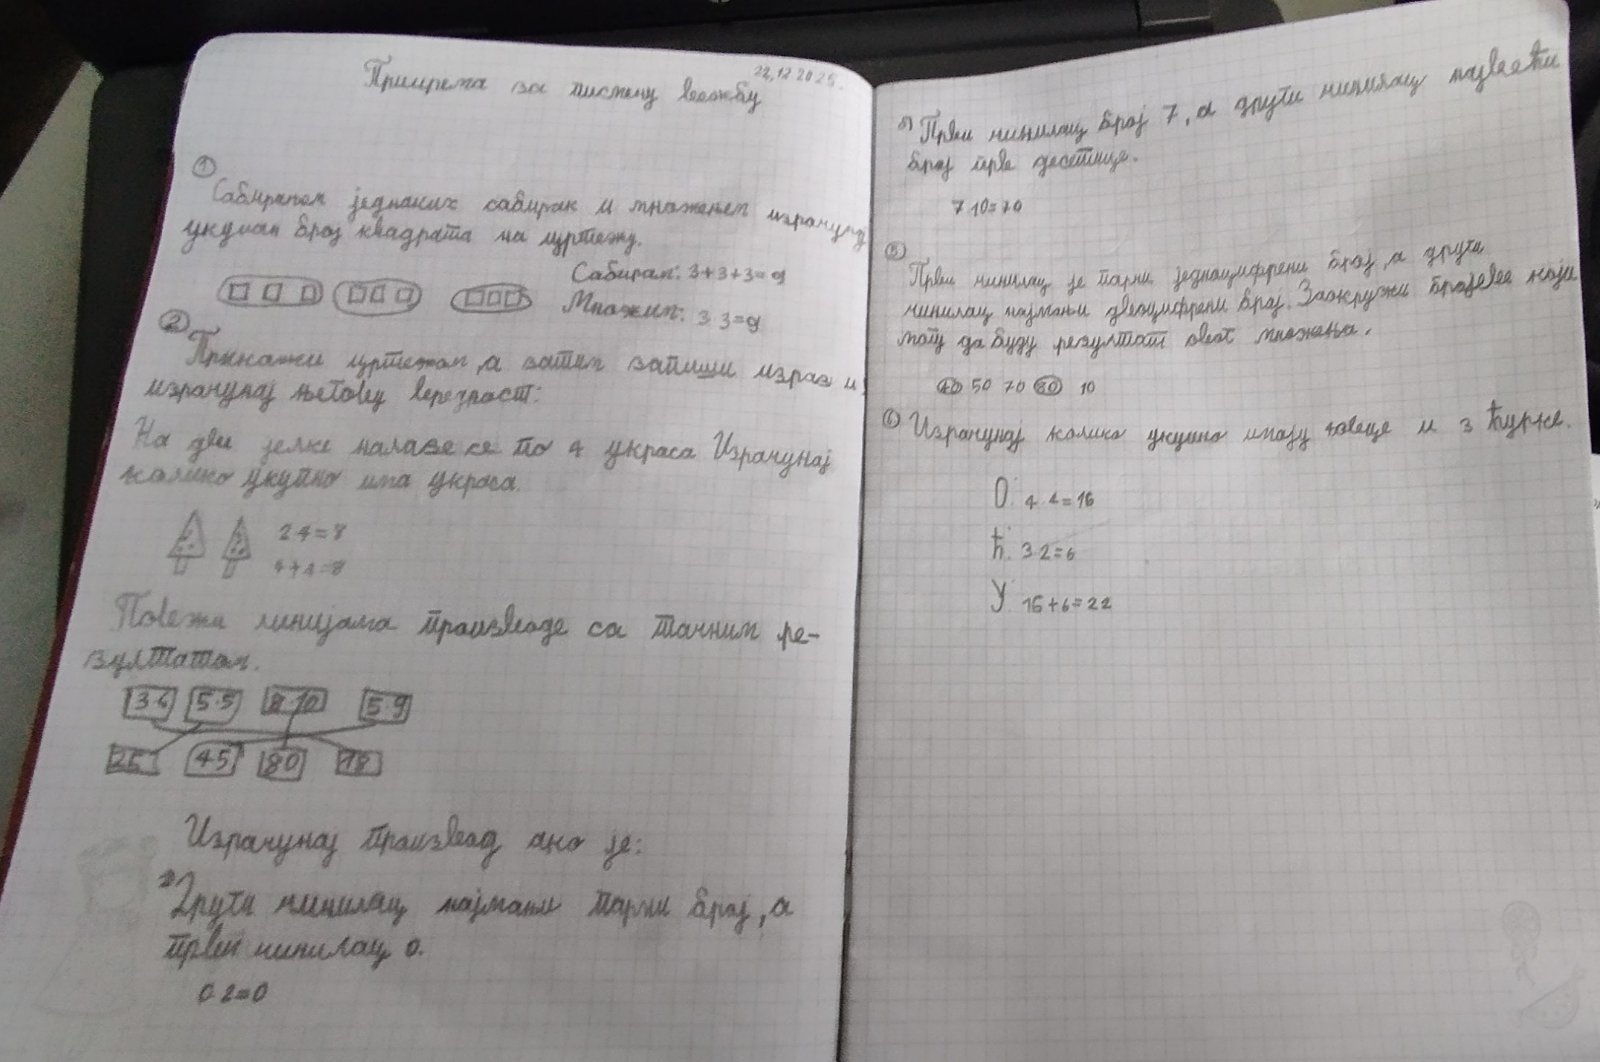 22.12.2025.
Припрема за писмену вежбу
①
Сабирањем једнаких сабирак и множењем израчунај
укупан број квадрата на цртежу.
Сабирам: 3+3+3=9
Множим: 3·3=9
②
Прикажи цртежом, а затим запиши израз и
израчунај његову вредност:
На две јелке налазе се по 4 украса Израчунај
колико укупно има украса.
2·4=8
4+4=8
Повежи линијама производе са тачним ре-
зултатом.
3·6 5·5 8·10 5·9
25 45 80 18
Израчунај производ ако је:
Други чинилац најмањи парни број, а
први чинилац 0.
0·2=0
Први чинилац број 7, а други чинилац највећи
број прве десетице.
7·10=70
⑤
Први чинилац је парни једноцифрени број, а други
чинилац најмањи двоцифрени број. Заокружи бројеве који
могу да буду резултат овог множења.
40 50 70 80 10
⑥ Израчунај колико укупно имају 4 овце и 3 ћурке.
О: 4·4=16
Ћ: 3·2=6
У: 16+6=22